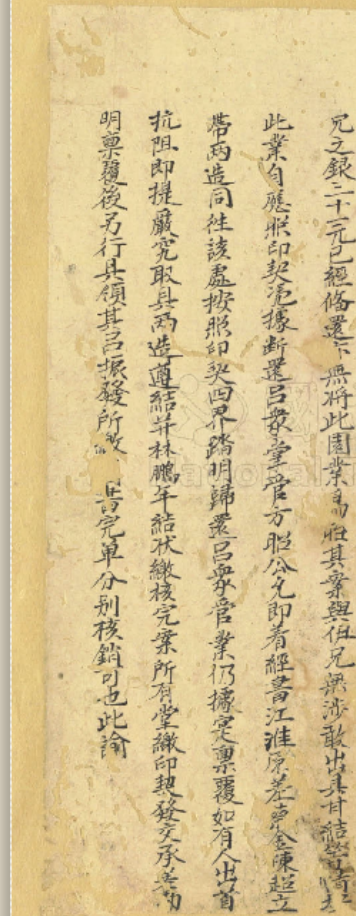 兄之銀三十二元已經備還下無將此園業為胜其案與伯兄無涉敢出具甘結等情
此業自應照印契憑據斷還呂眾掌管方昭公允即着經書江淮原差黃金陳超立
帶兩造同往該處按照印契四界踏明歸還呂眾管業仍據寔稟覆如有人出首
抗阻即提嚴究取具兩造遵結并林鵬年結狀繳核完案所有堂繳印契發交承差
明稟覆後另行具領其呂振發所繳 告完單分别核銷可也此諭